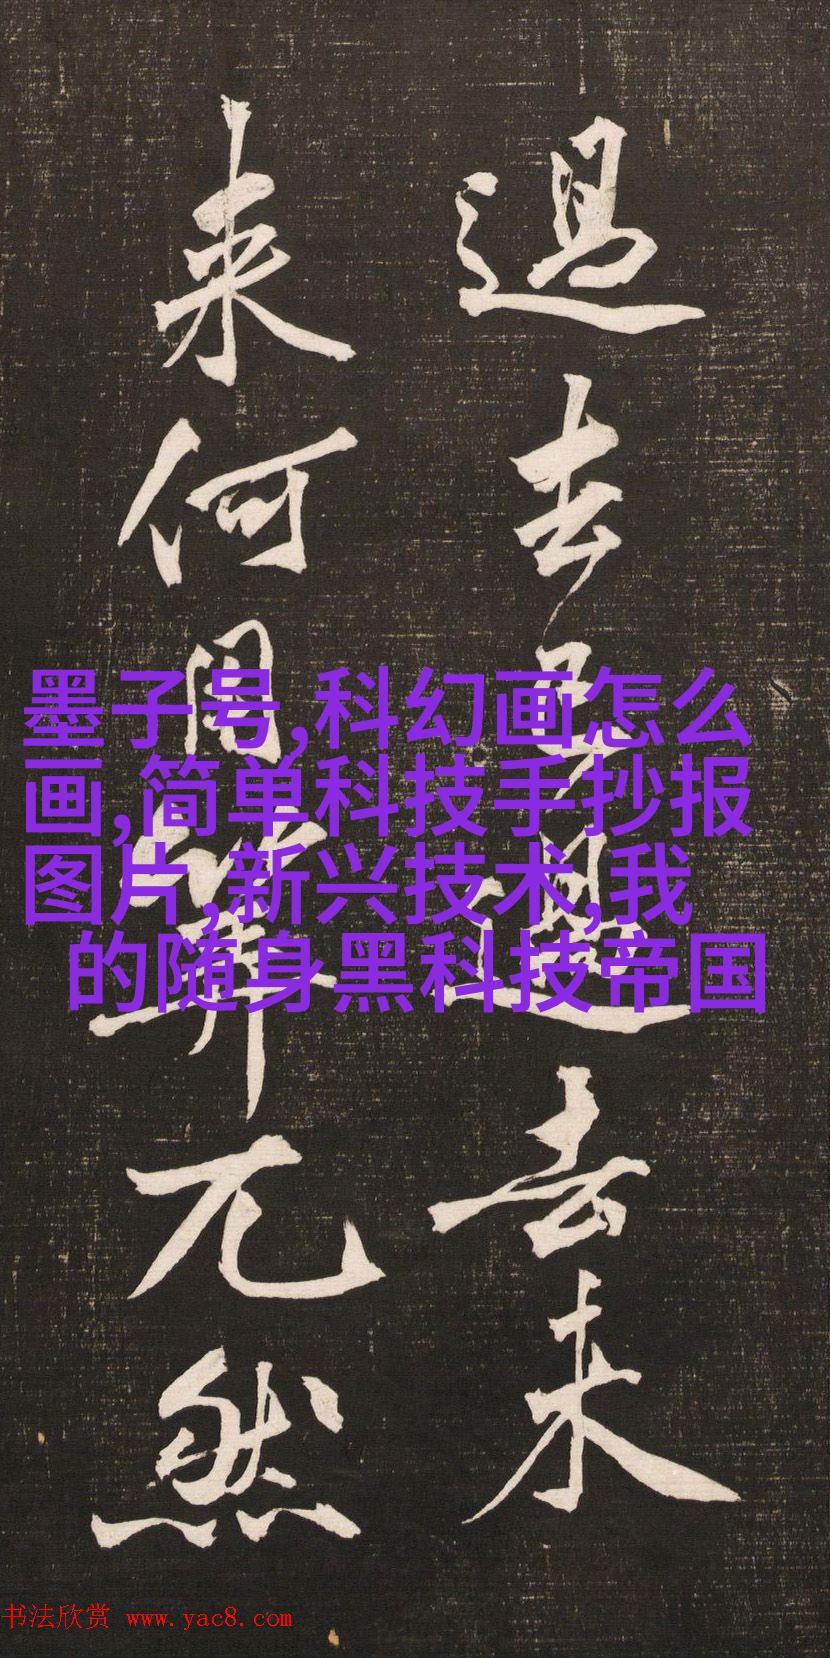 過去已過去未
来何用算兀然
墨子号,科幻画怎么
画,简单科技手抄报
图片,新兴技术,我
的随身黑科技帝国
书法欣赏 www.yac8.com